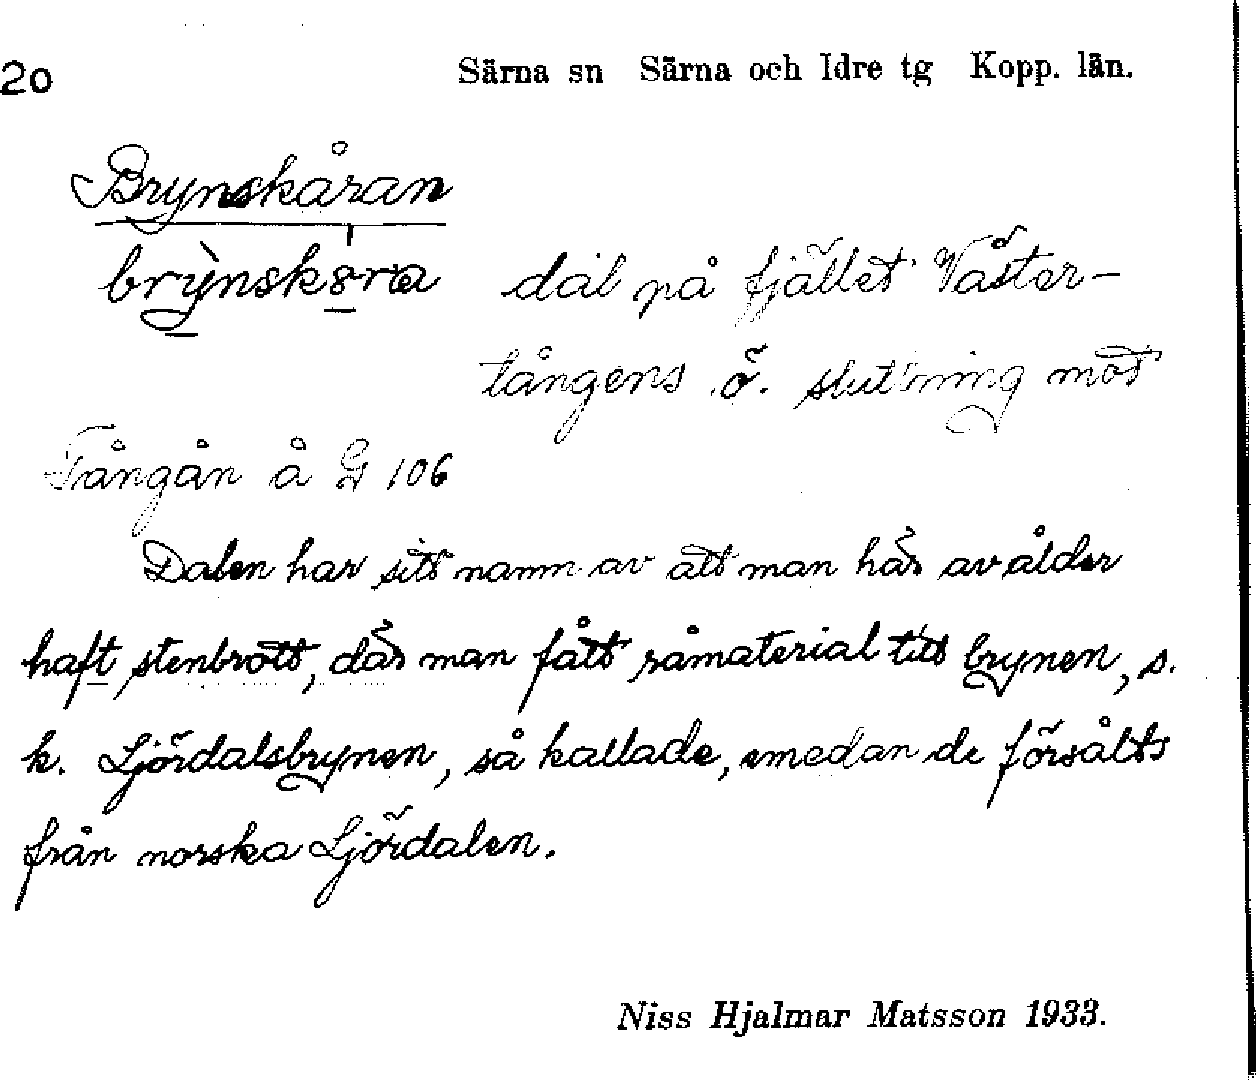 20
Särna sn Särna och Idre tg Kopp. län.
Brynskåran
dal på fjället Väster-
tångens ö. sluttning mot
Tångån å G 106
Dalen har sitt namn av att man här av ålder
haft stenbrott, där man fått råmaterial till brynen, s.
k. Ljördalsbrynen, så kallade, emedan de försålts
från norska Ljördalen.
Niss Hjalmar Matsson 1933.